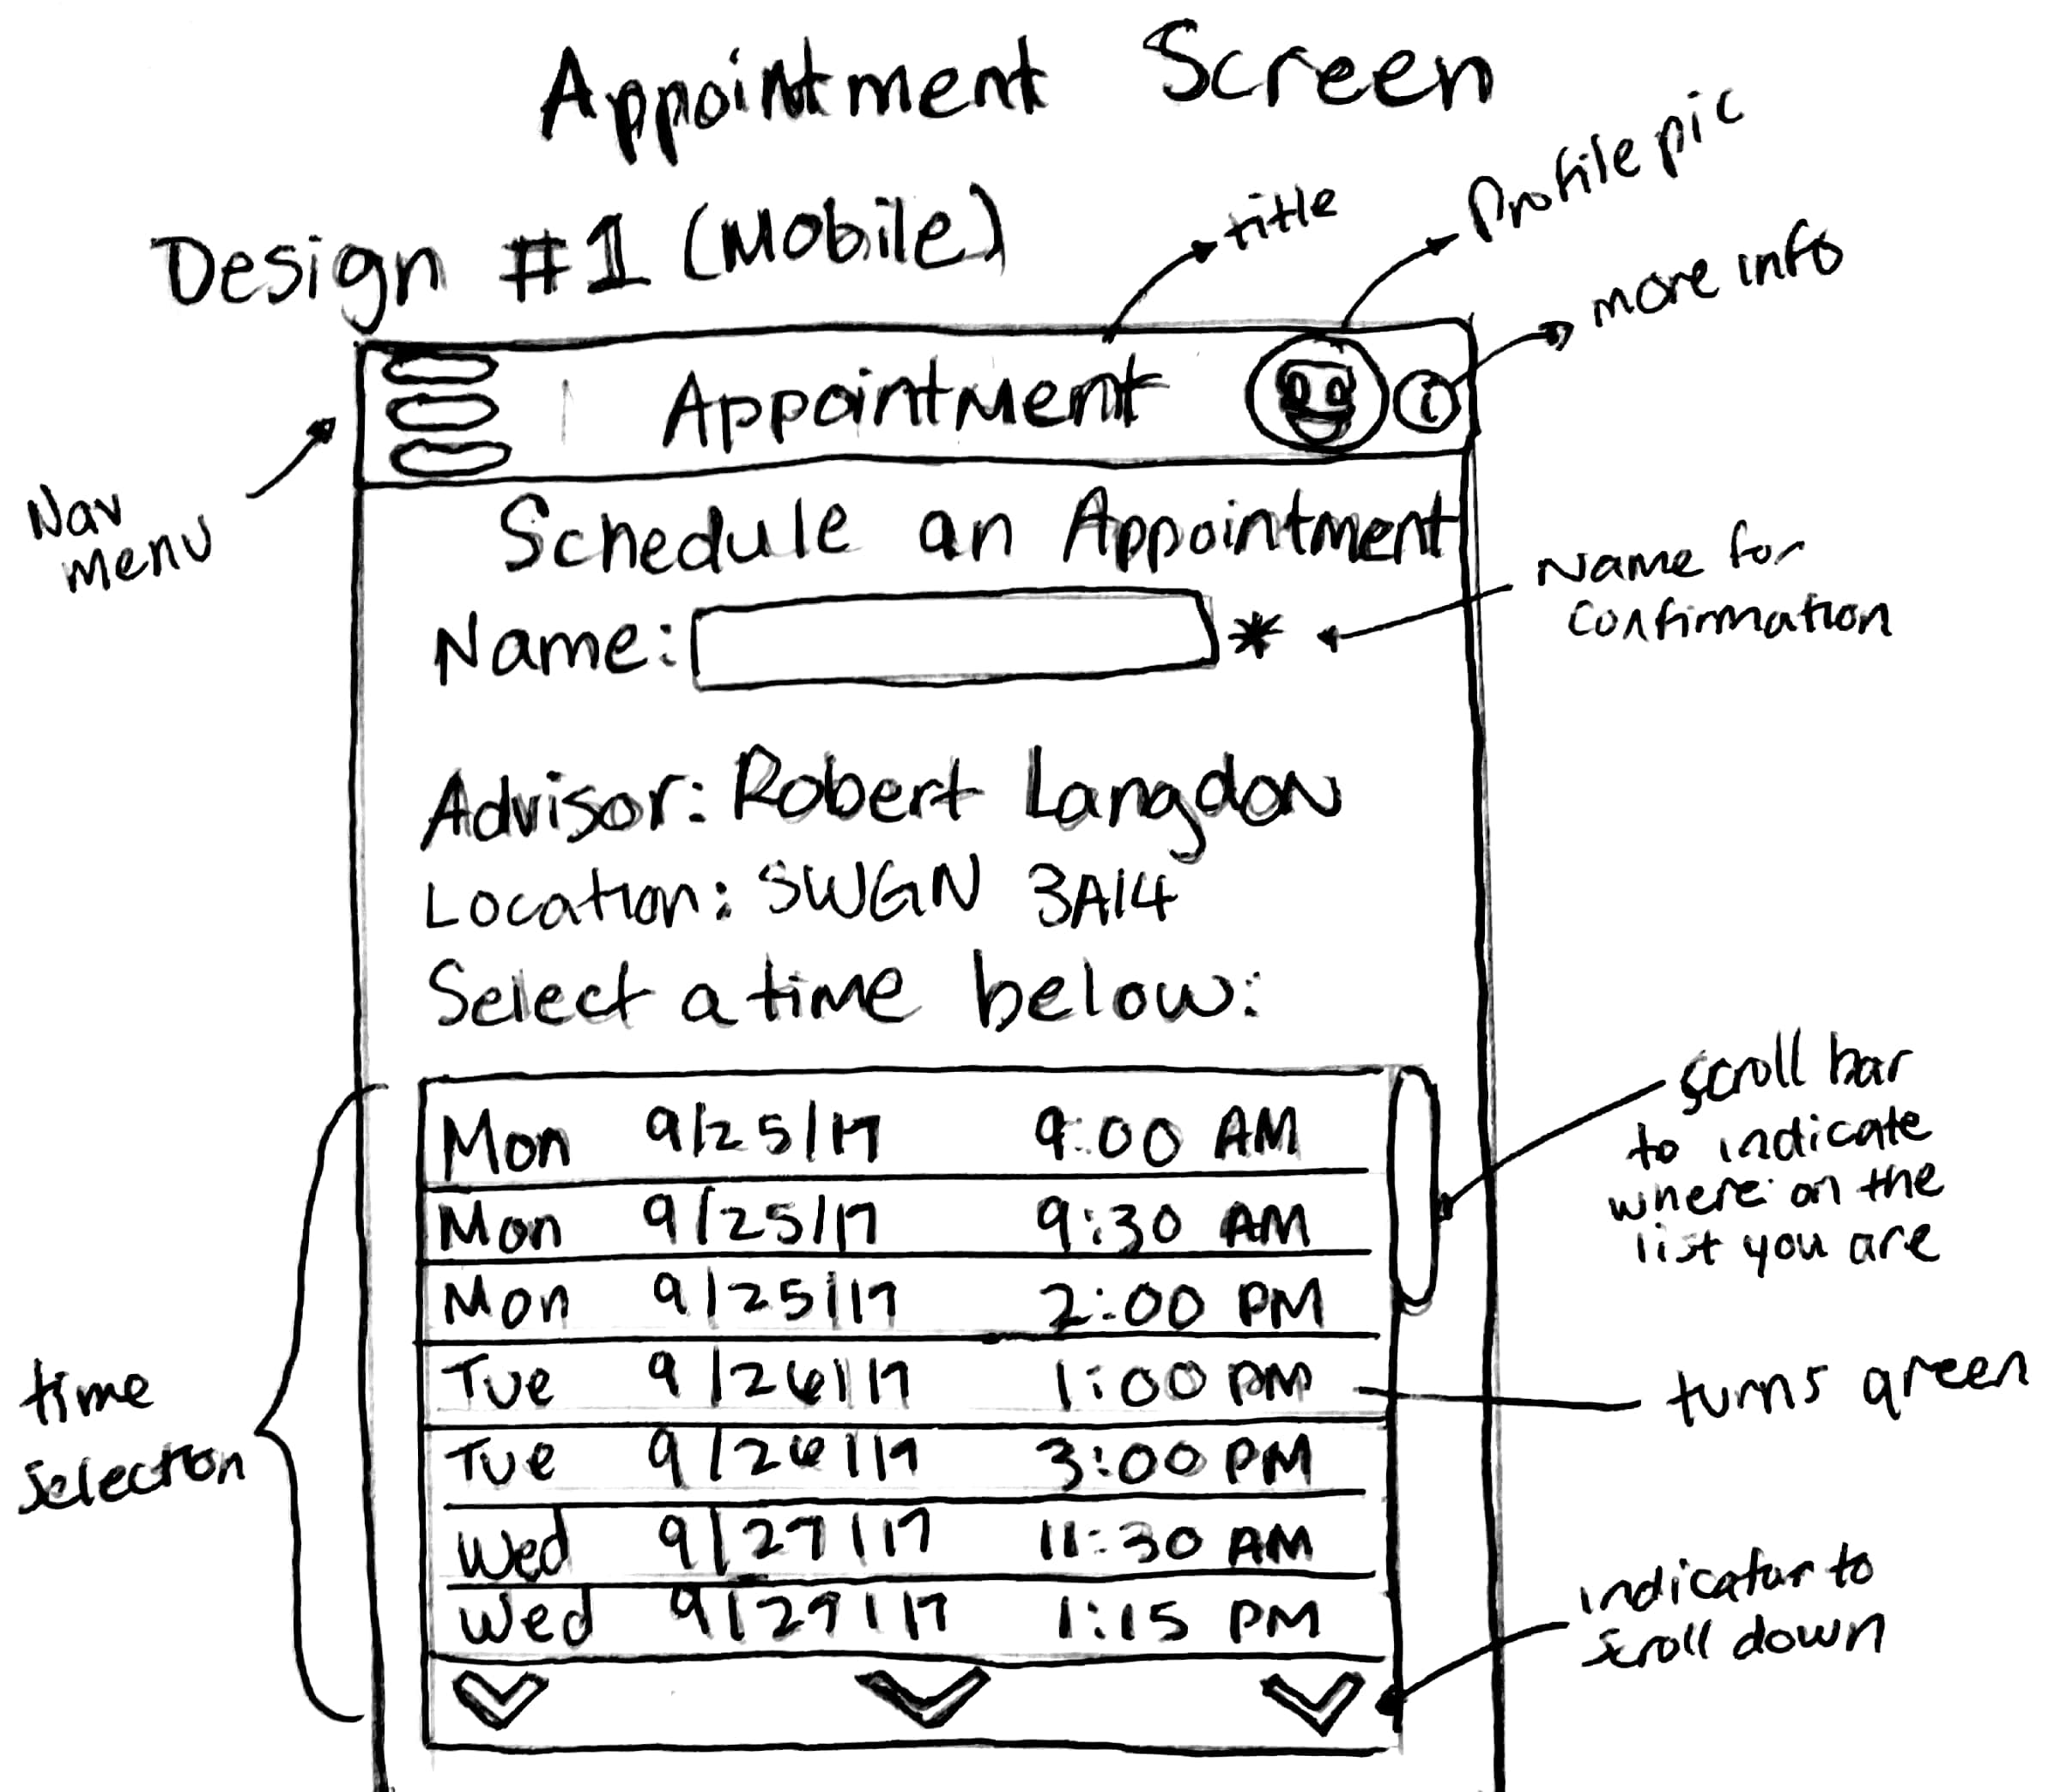 Appointment Screen
Design #1 (Mobile)
title
Profile pic
more info
Nav
menu
Appointment
i
Schedule an Appointment
Name: *
Name for
confirmation
Advisor: Robert Langdon
Location: SWGN 3A14
Select a time below:
time
selection
Mon 9/25/17 9:00 AM
Mon 9/25/17 9:30 AM
Mon 9/25/17 2:00 PM
Tue 9/26/17 1:00 PM
Tue 9/26/17 3:00 PM
Wed 9/27/17 11:30 AM
Wed 9/27/17 1:15 PM
scroll bar
to indicate
where on the
list you are
turns green
indicator to
scroll down